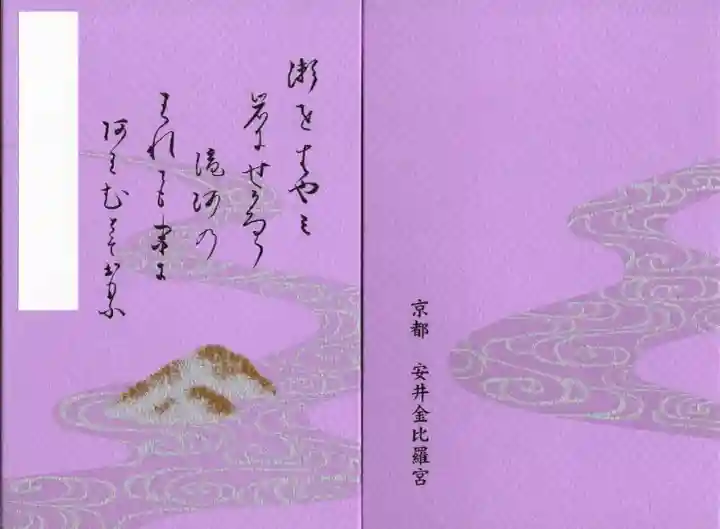 京都　安井金比羅宮
瀬をはやみ
岩にせかるゝ
瀧河の
われても末に
阿はむとそおもふ